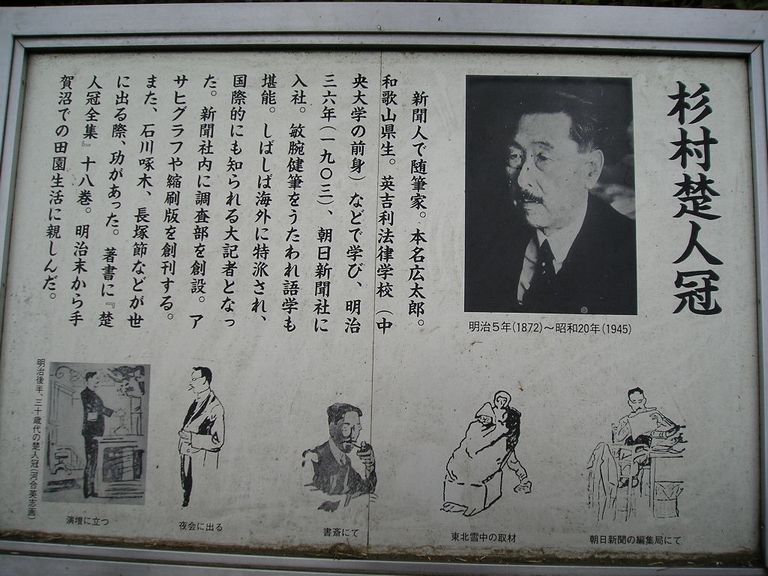 杉村楚人冠
明治5年(1872)～昭和20年(1945)
新聞人で随筆家。本名広太郎。
和歌山県生。英吉利法律学校（中
央大学の前身）などで学び、明治
三六年（一九〇三）、朝日新聞社に
入社。敏腕健筆をうたわれ語学も
堪能。しばしば海外に特派され、
国際的にも知られる大記者となっ
た。新聞社内に調査部を創設。ア
サヒグラフや縮刷版を創刊する。
また、石川啄木、長塚節などが世
に出る際、功があった。著書に『楚
人冠全集』十八巻。明治末から手
賀沼での田園生活に親しんだ。
朝日新聞の編集局にて
東北雪中の取材
書斎にて
夜会に出る
演壇に立つ
明治後半、三十歳代の楚人冠(河合英忠画)